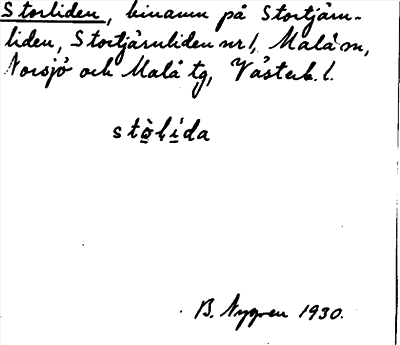 Storliden, binamn på Stortjärn-
liden, Stortjärnliden nr 1, Malå sn,
Norsjö och Malå tg, Västerb. l.
stò̠lì̠da
B. Nygren 1930.